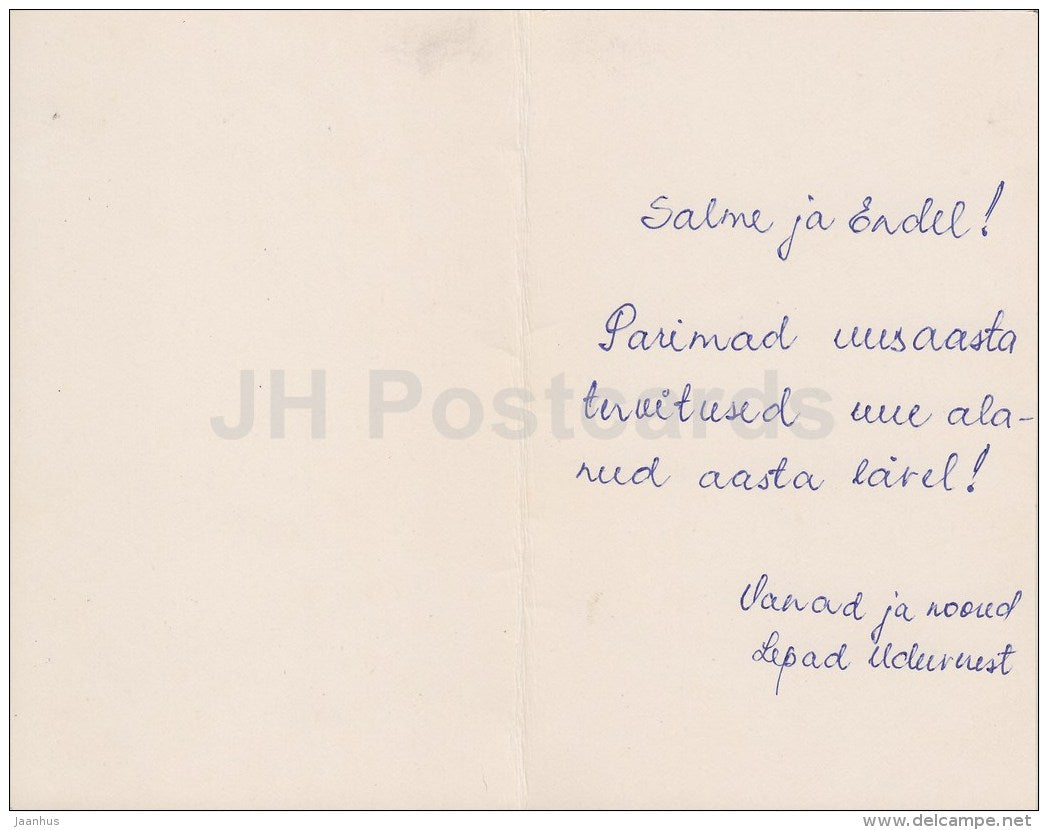 Salme ja Endel!
Parimad uusaasta
tervitused uue ala-
nud aasta lävel!
Vanad ja noored
Lepad
JH Postcards
Jaanhus
www.delcampe.net